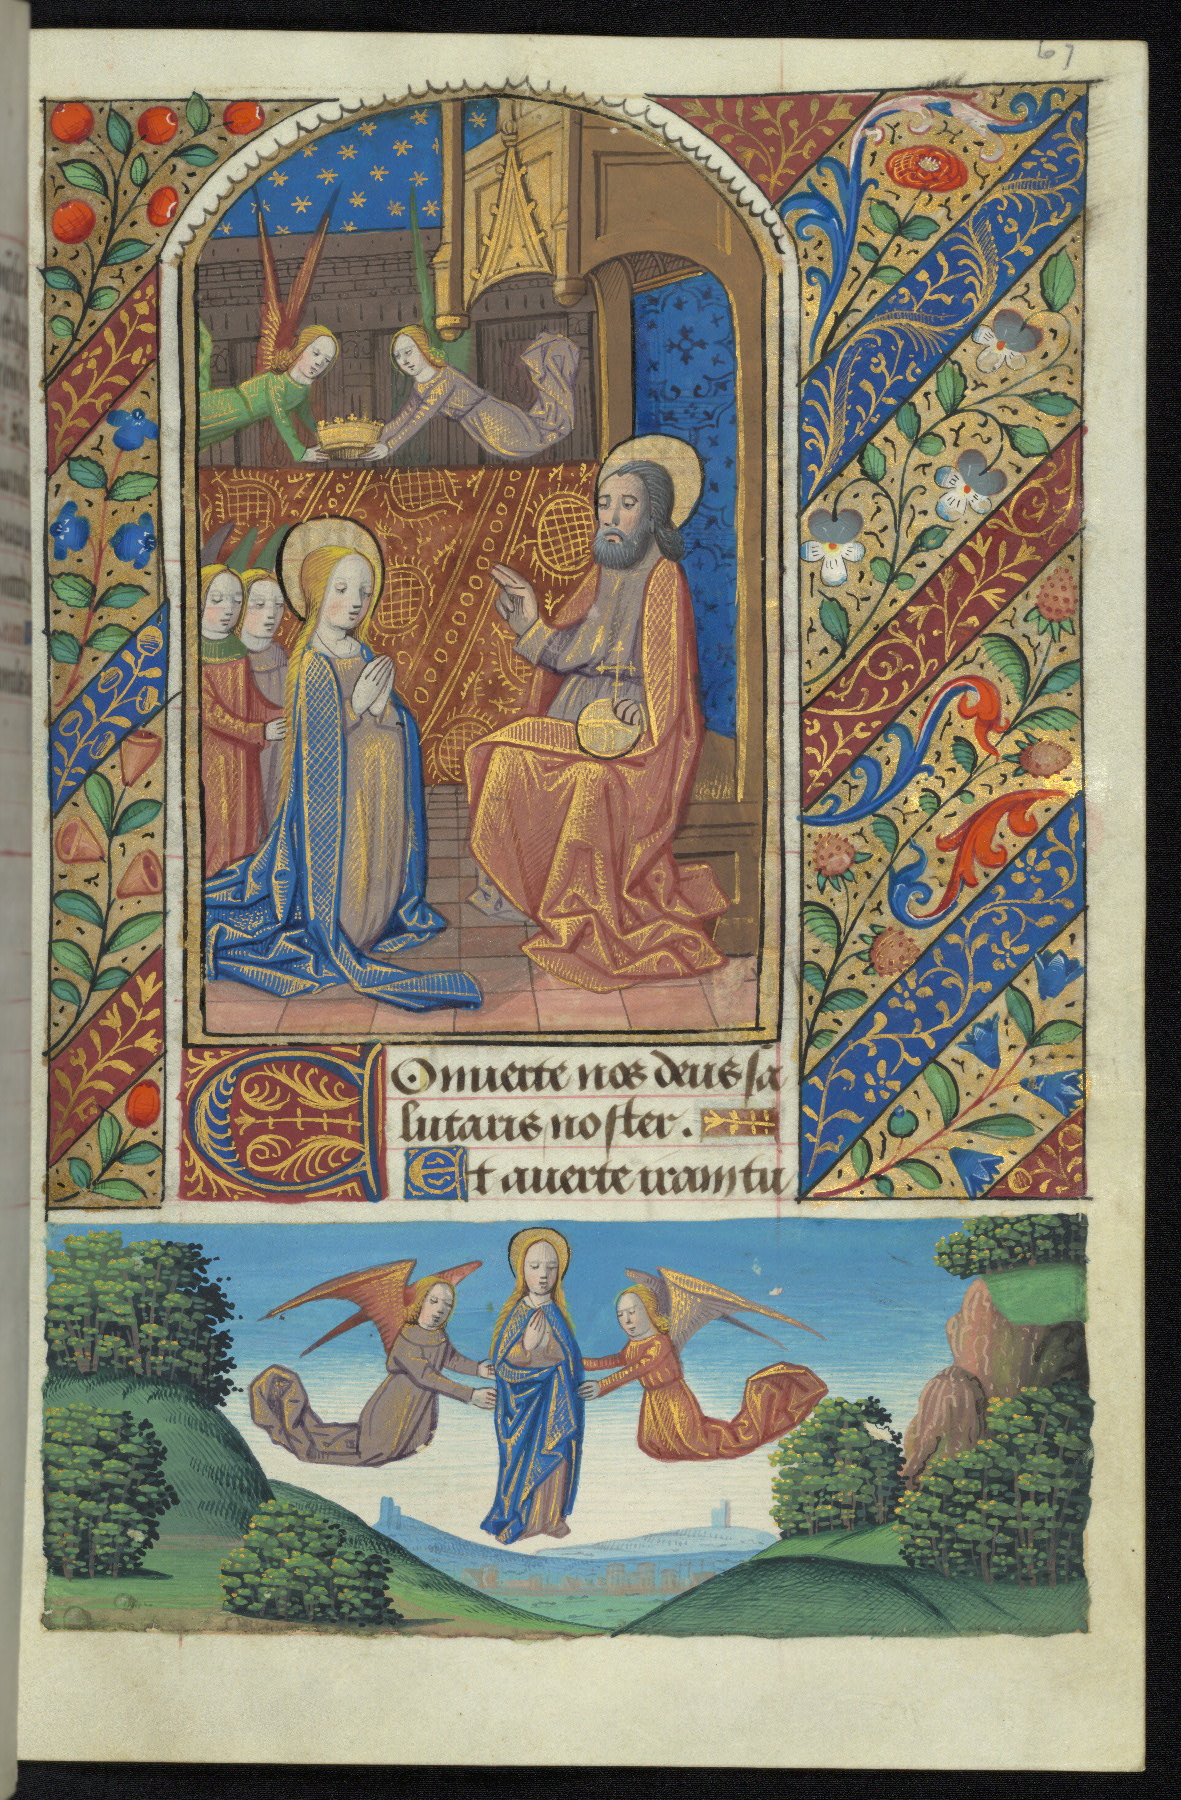 67
Conuerte nos deus sa
lutaris noster.
Et auerte iram tu